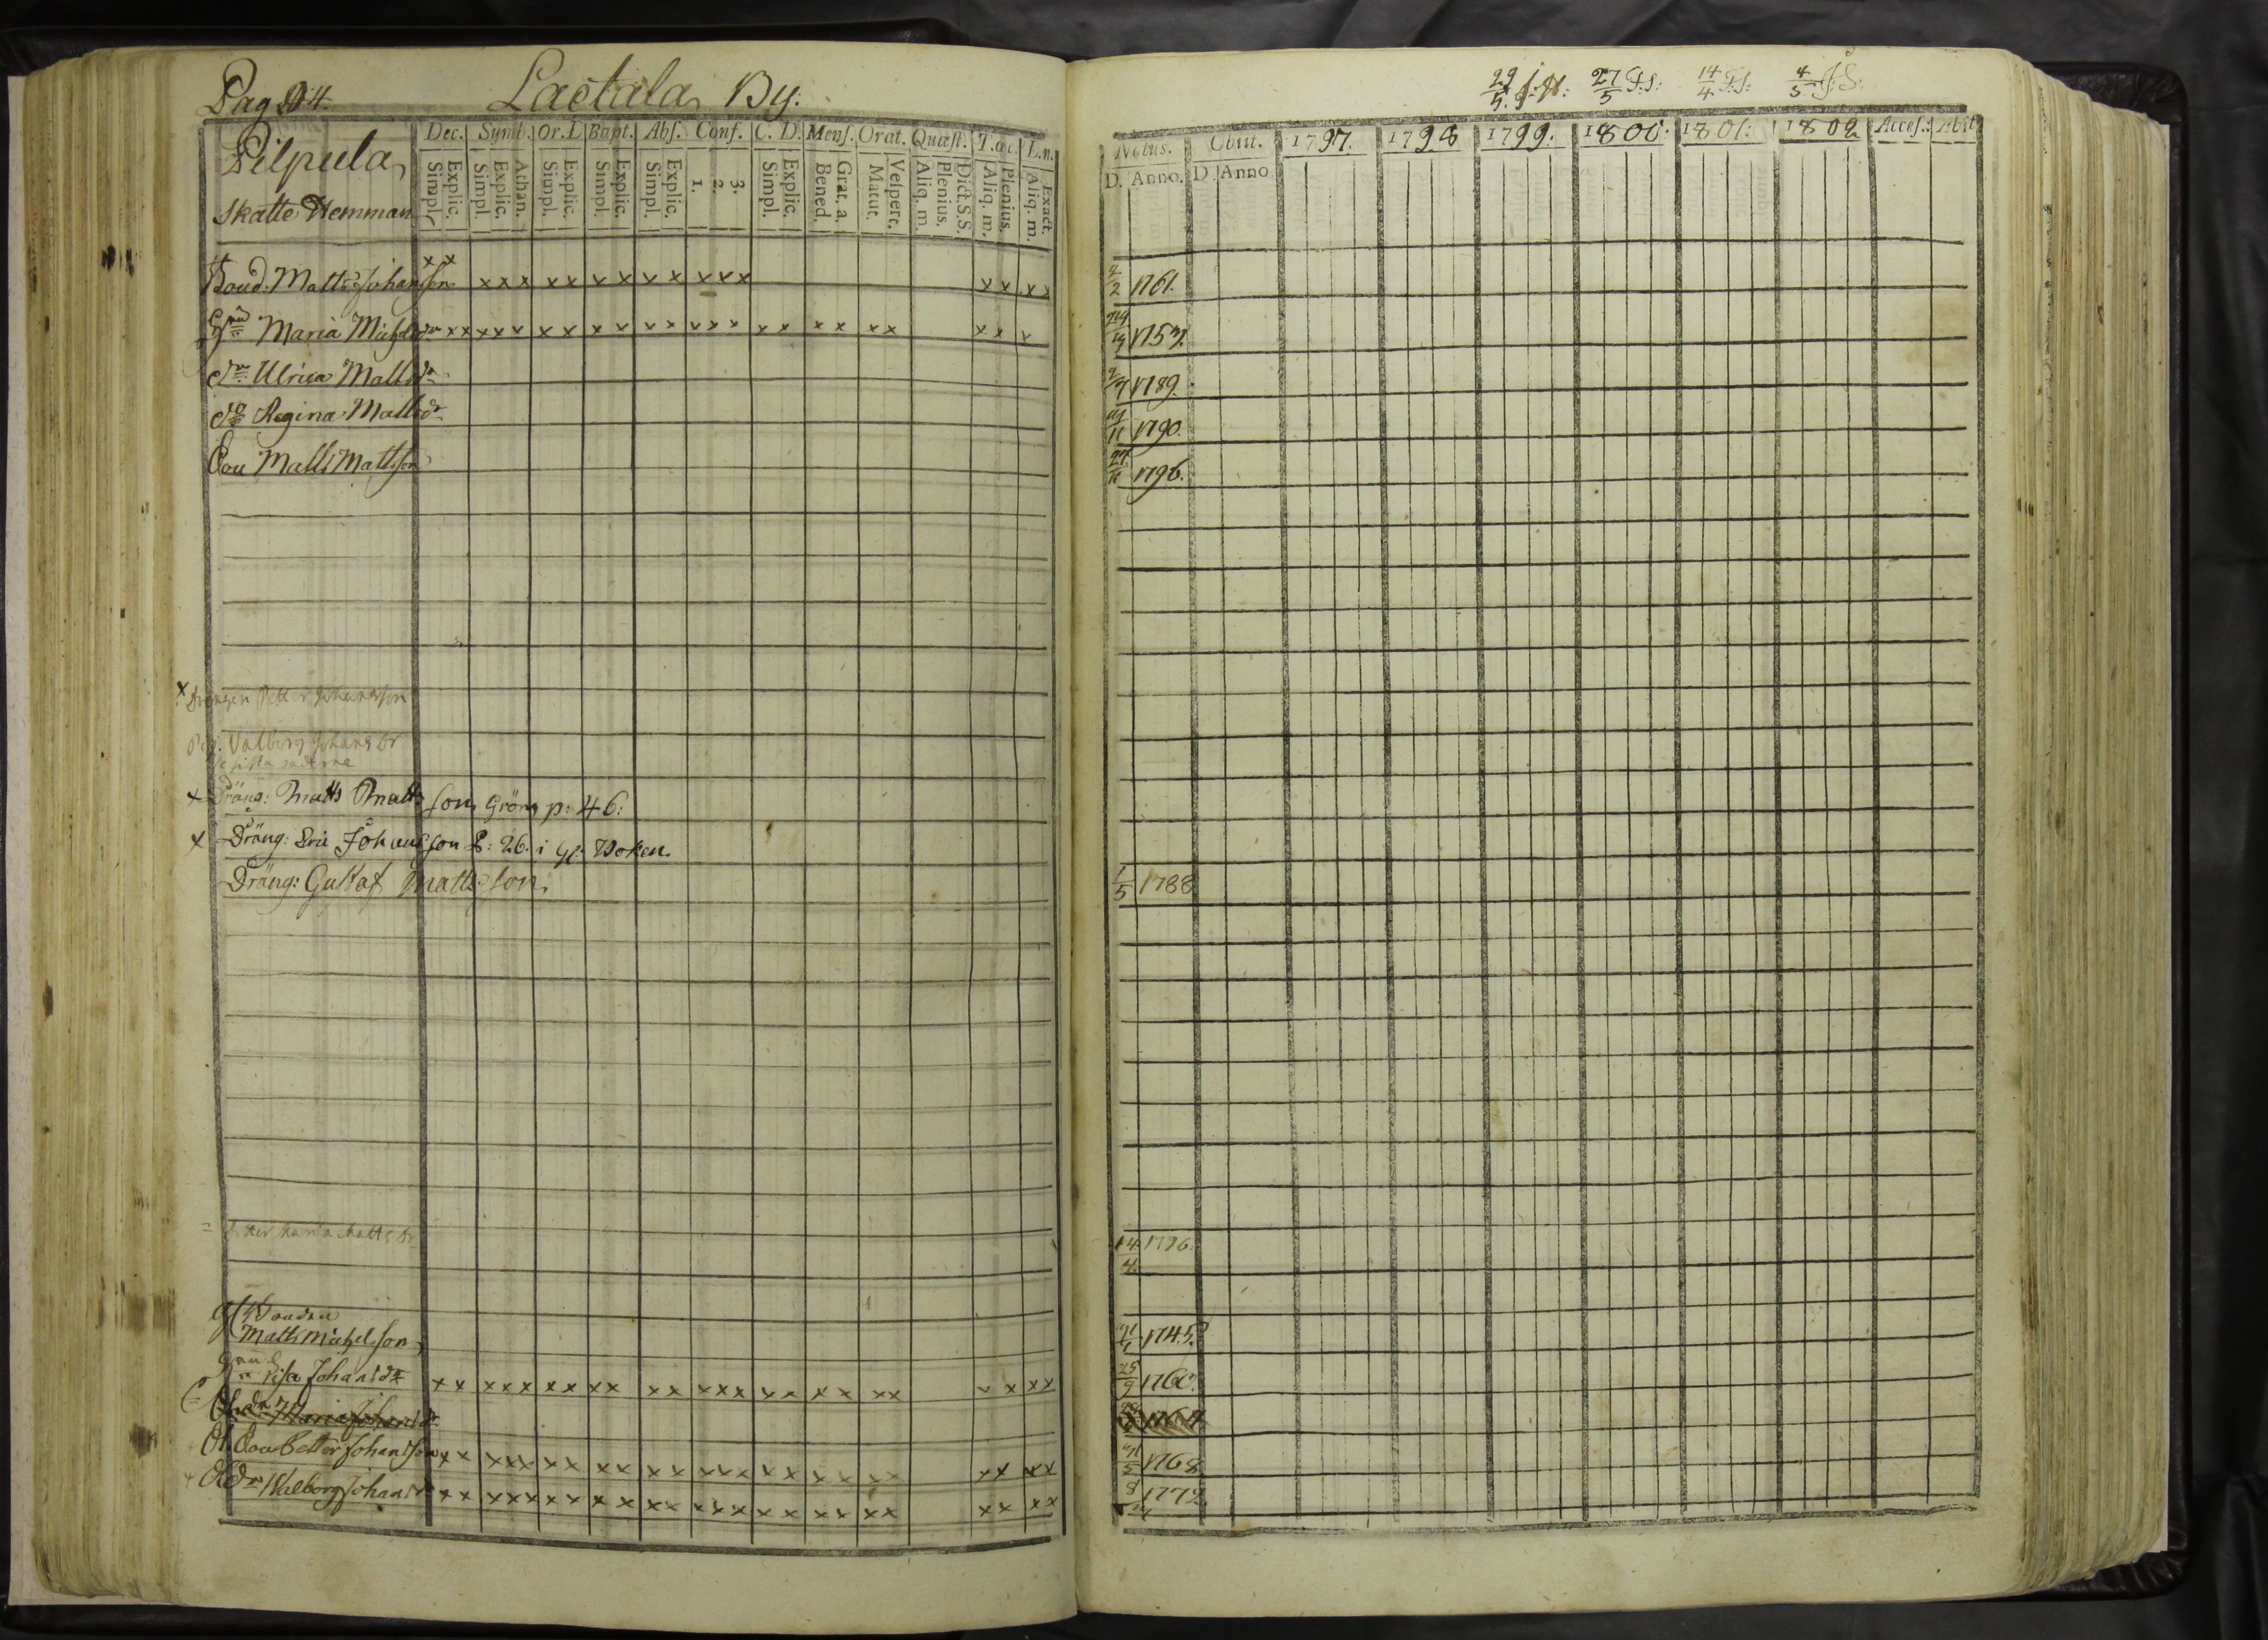 Pag 94. Lactala By:
Pilpula
Skatte Hemman
Dec. Symb. Or. L Bapt. Abs. Conf. C. D. Mens. Orat. Quæst. T. œc. L. n.
Simpl. Explic. Simpl. Explic. Athan. Simpl. Explic. Simpl. Explic. Simpl. Explic. 1. 2. 3. Simpl. Explic. Bened. Grat. a. Matut. Vespert. Aliq. m. Plenius. Dict. S.S. Aliq. m. Plenius. Aliq. m. Exact.
Bond: Matts Johansson x x x x x x x x x x x x x x x x x x
Maria Michelsdr x x x x x x x x x x x x x x x x x x x x x x x
dr Ulrica Mattsdr
dr Regina Mattsdr
Son Matts Mattsson
x Drängen Petter Johansson
Pig. Valborg Johansdr
x Dräng: Matts Mattsson Gröns p: 46:
x Dräng: Eric Johansson P: 26. i gl. Boken
Dräng: Gustaf Mattsson
= dotter Maria Mattsdr
Bonden
Matts Michelsson
Lisa Johansdr x x x x x x x x x x x x x x x x x x x x x x x x
Maria Johansdr
Son Petter Johansson x x x x x x x x x x x x x x x x x x x x x x x x
dr Walborg Johansdr x x x x x x x x x x x x x x x x x x x x x x x x
29/5. J:H: 27/5 F:S: 14/4 F:S: 4/5 F:S:
Natus. Com. 1797. 1798 1799. 1800. 1801. 1802 Acces. Abit
D. Anno. D. Anno
1761.
1757.
1789.
1790.
1796.
1/5 1788
14/4 1796.
1745.
25/9 1760.
1764
1768
1772